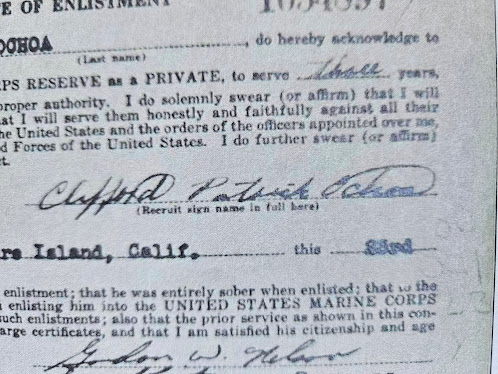 E OF ENLISTMENT 1054897
OCHOA, do hereby acknowledge to
(Last name)
RPS RESERVE as a PRIVATE, to serve three years,
proper authority. I do solemnly swear (or affirm) that I will
at I will serve them honestly and faithfully against all their
he United States and the orders of the officers appointed over me,
d Forces of the United States. I do further swear (or affirm)
t.
Clifford Patrick Ochoa
(Recruit sign name in full here)
re Island, Calif. this 23rd
enlistment; that he was entirely sober when enlisted; that to the
n enlisting him into the UNITED STATES MARINE CORPS
such enlistments; also that the prior service as shown in this con-
arge certificates, and that I am satisfied his citizenship and age
Gordon W. Nelson